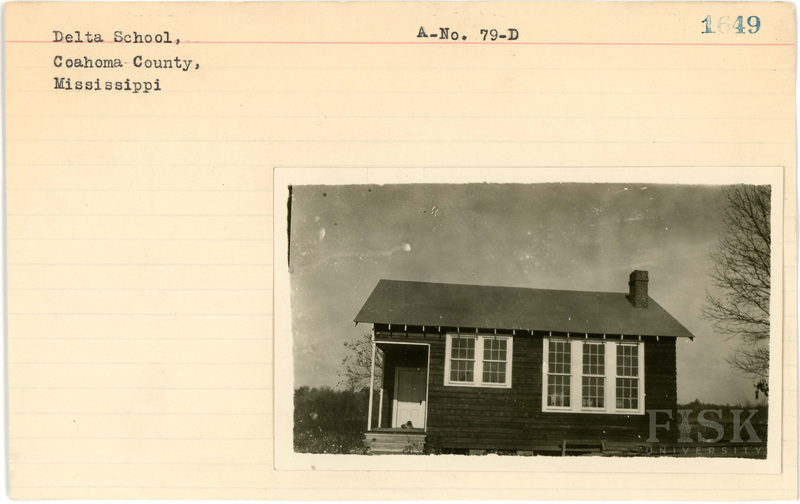 Delta School,
A-No. 79-D
1649
Coahoma County,
Mississippi
FISK
UNIVERSITY